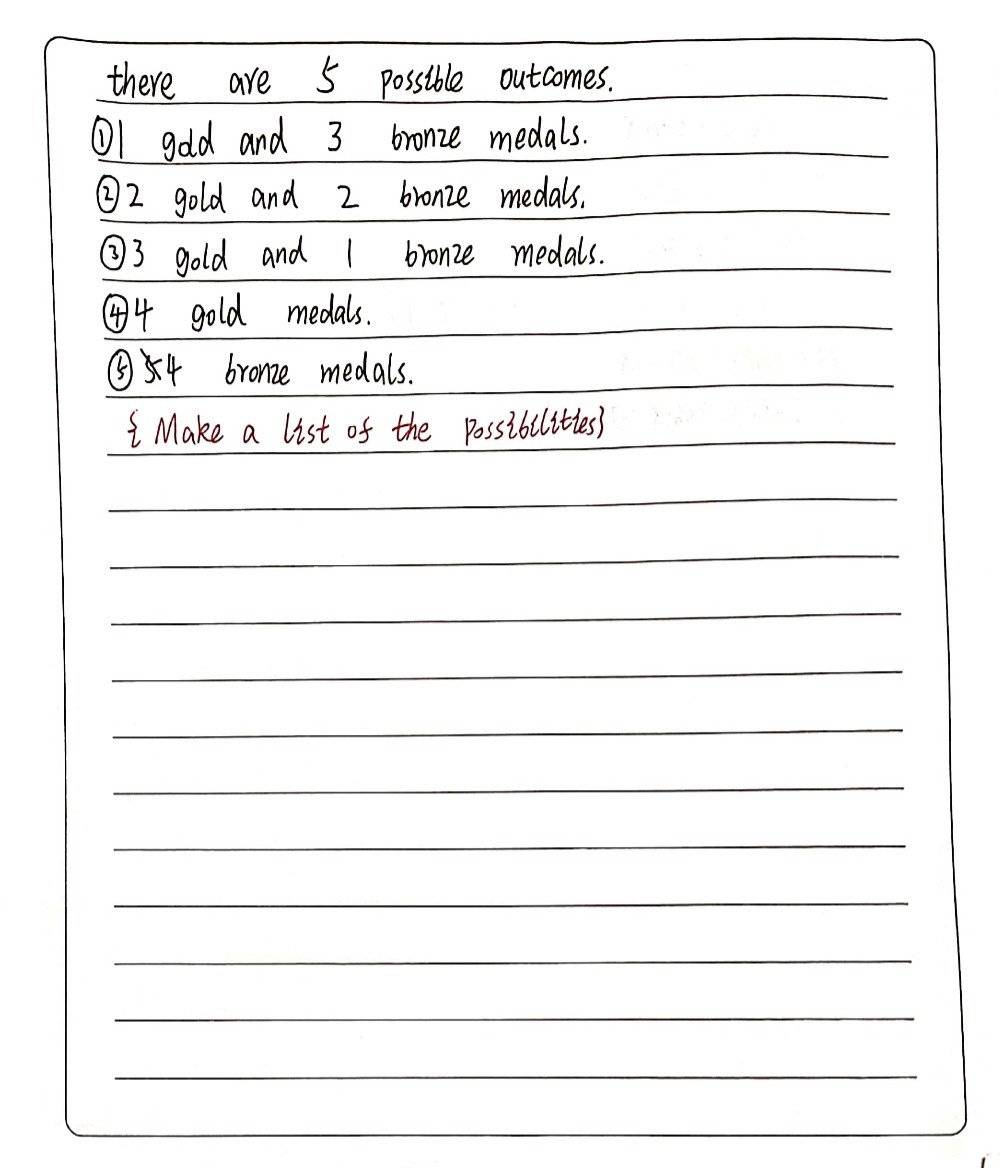 there are 5 possible outcomes.
①1 gold and 3 bronze medals.
②2 gold and 2 bronze medals.
③3 gold and 1 bronze medals.
④4 gold medals.
⑤4 bronze medals.
{Make a list of the possibilities}